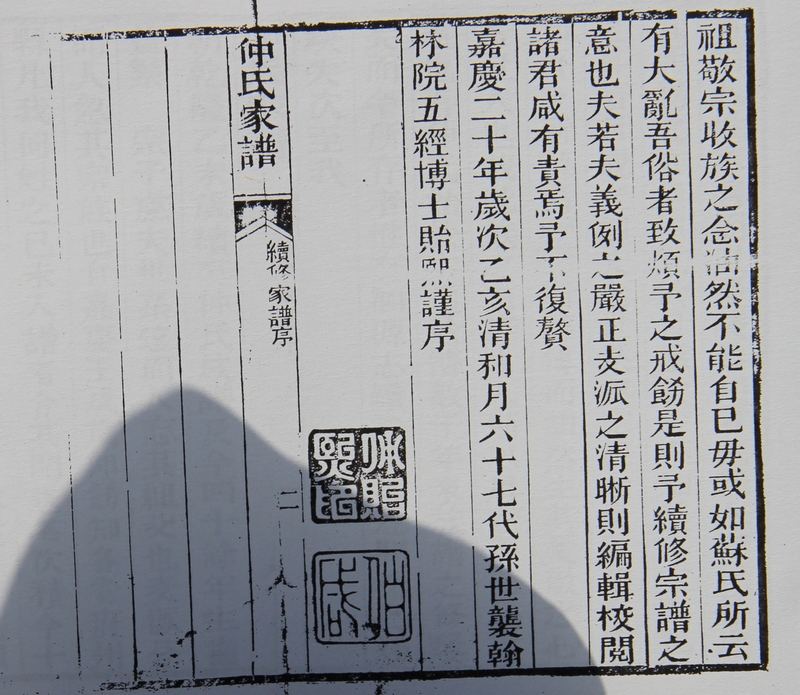 祖敬宗收族之念油然不能自已毋或如蘇氏所云
有大亂吾俗者致煩予之戒飭是則予續修宗譜之
意也夫若夫義例之嚴正支派之清晰則編輯校閱
諸君咸有責焉予不復贅
嘉慶二十年歲次乙亥清和月六十七代孫世襲翰
林院五經博士貽熙謹序
仲貽
熙印
伯
仲氏家譜
續修家譜序
二